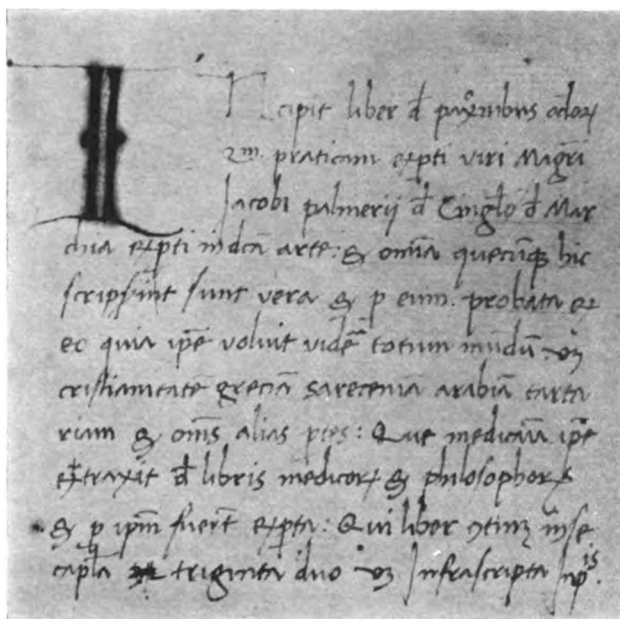 INcipit liber d̄ paxīnibus odoꝝ
2m. praticam exp̱ti viri Magr̄i
Jacobi palmerij d̄ Cingl̄o d̄ Mar
chia exp̱ti in dc̄a arte: & om̄ia quecūqꝫ hic
scripsint sunt vera & p eum. probata et
ec quia ip̄e voluit vidēe totum mūdū. vꝫ
cristianitatē greciā sareceniā arabiā tarta
riam & om̄s alias ptes: Que medicaīa ip̄e
extraxit d̄ libris medicoꝝ & philosophoꝝ
& p ip̄m fuerūt exp̱ta: Qui liber ꝯtinꝫ in se
capl̄a triginta duo vꝫ Infrascripta